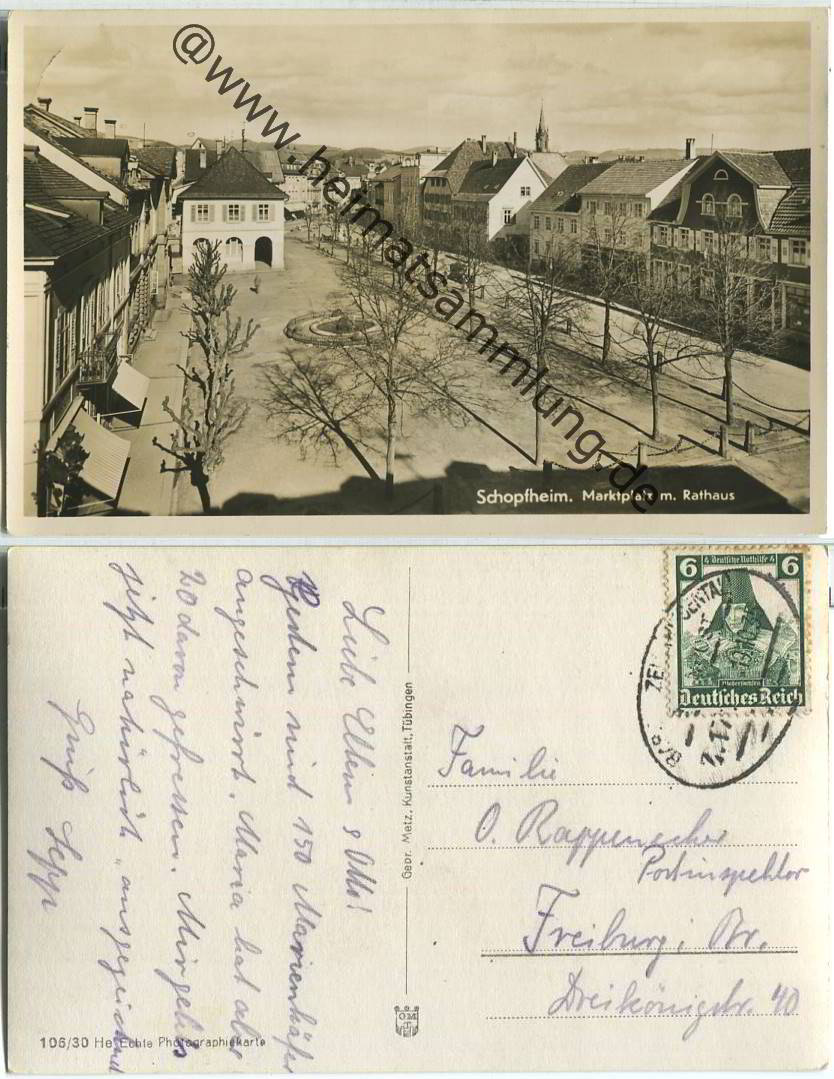 @www.heimatsammlung.de
Schopfheim. Marktplatz m. Rathaus
Liebe Eltern & Otto!
Gestern sind 150 Marienkäfer
angeschwirrt. Maria hat aber
20 davon gefressen. Mir geht es
jetzt natürlich "ausgezeichnet
Gruß Sepp
Gebr. Metz, Kunstanstalt, Tübingen
GM
106/30 He Echte Photographiekarte
6 4 Deutsche Nothilfe 4 6
Deutsches Reich
ZELL
Familie
O. Rappenecker
Postinspektor
Freiburg i. Br.
Dreikönigstr. 40